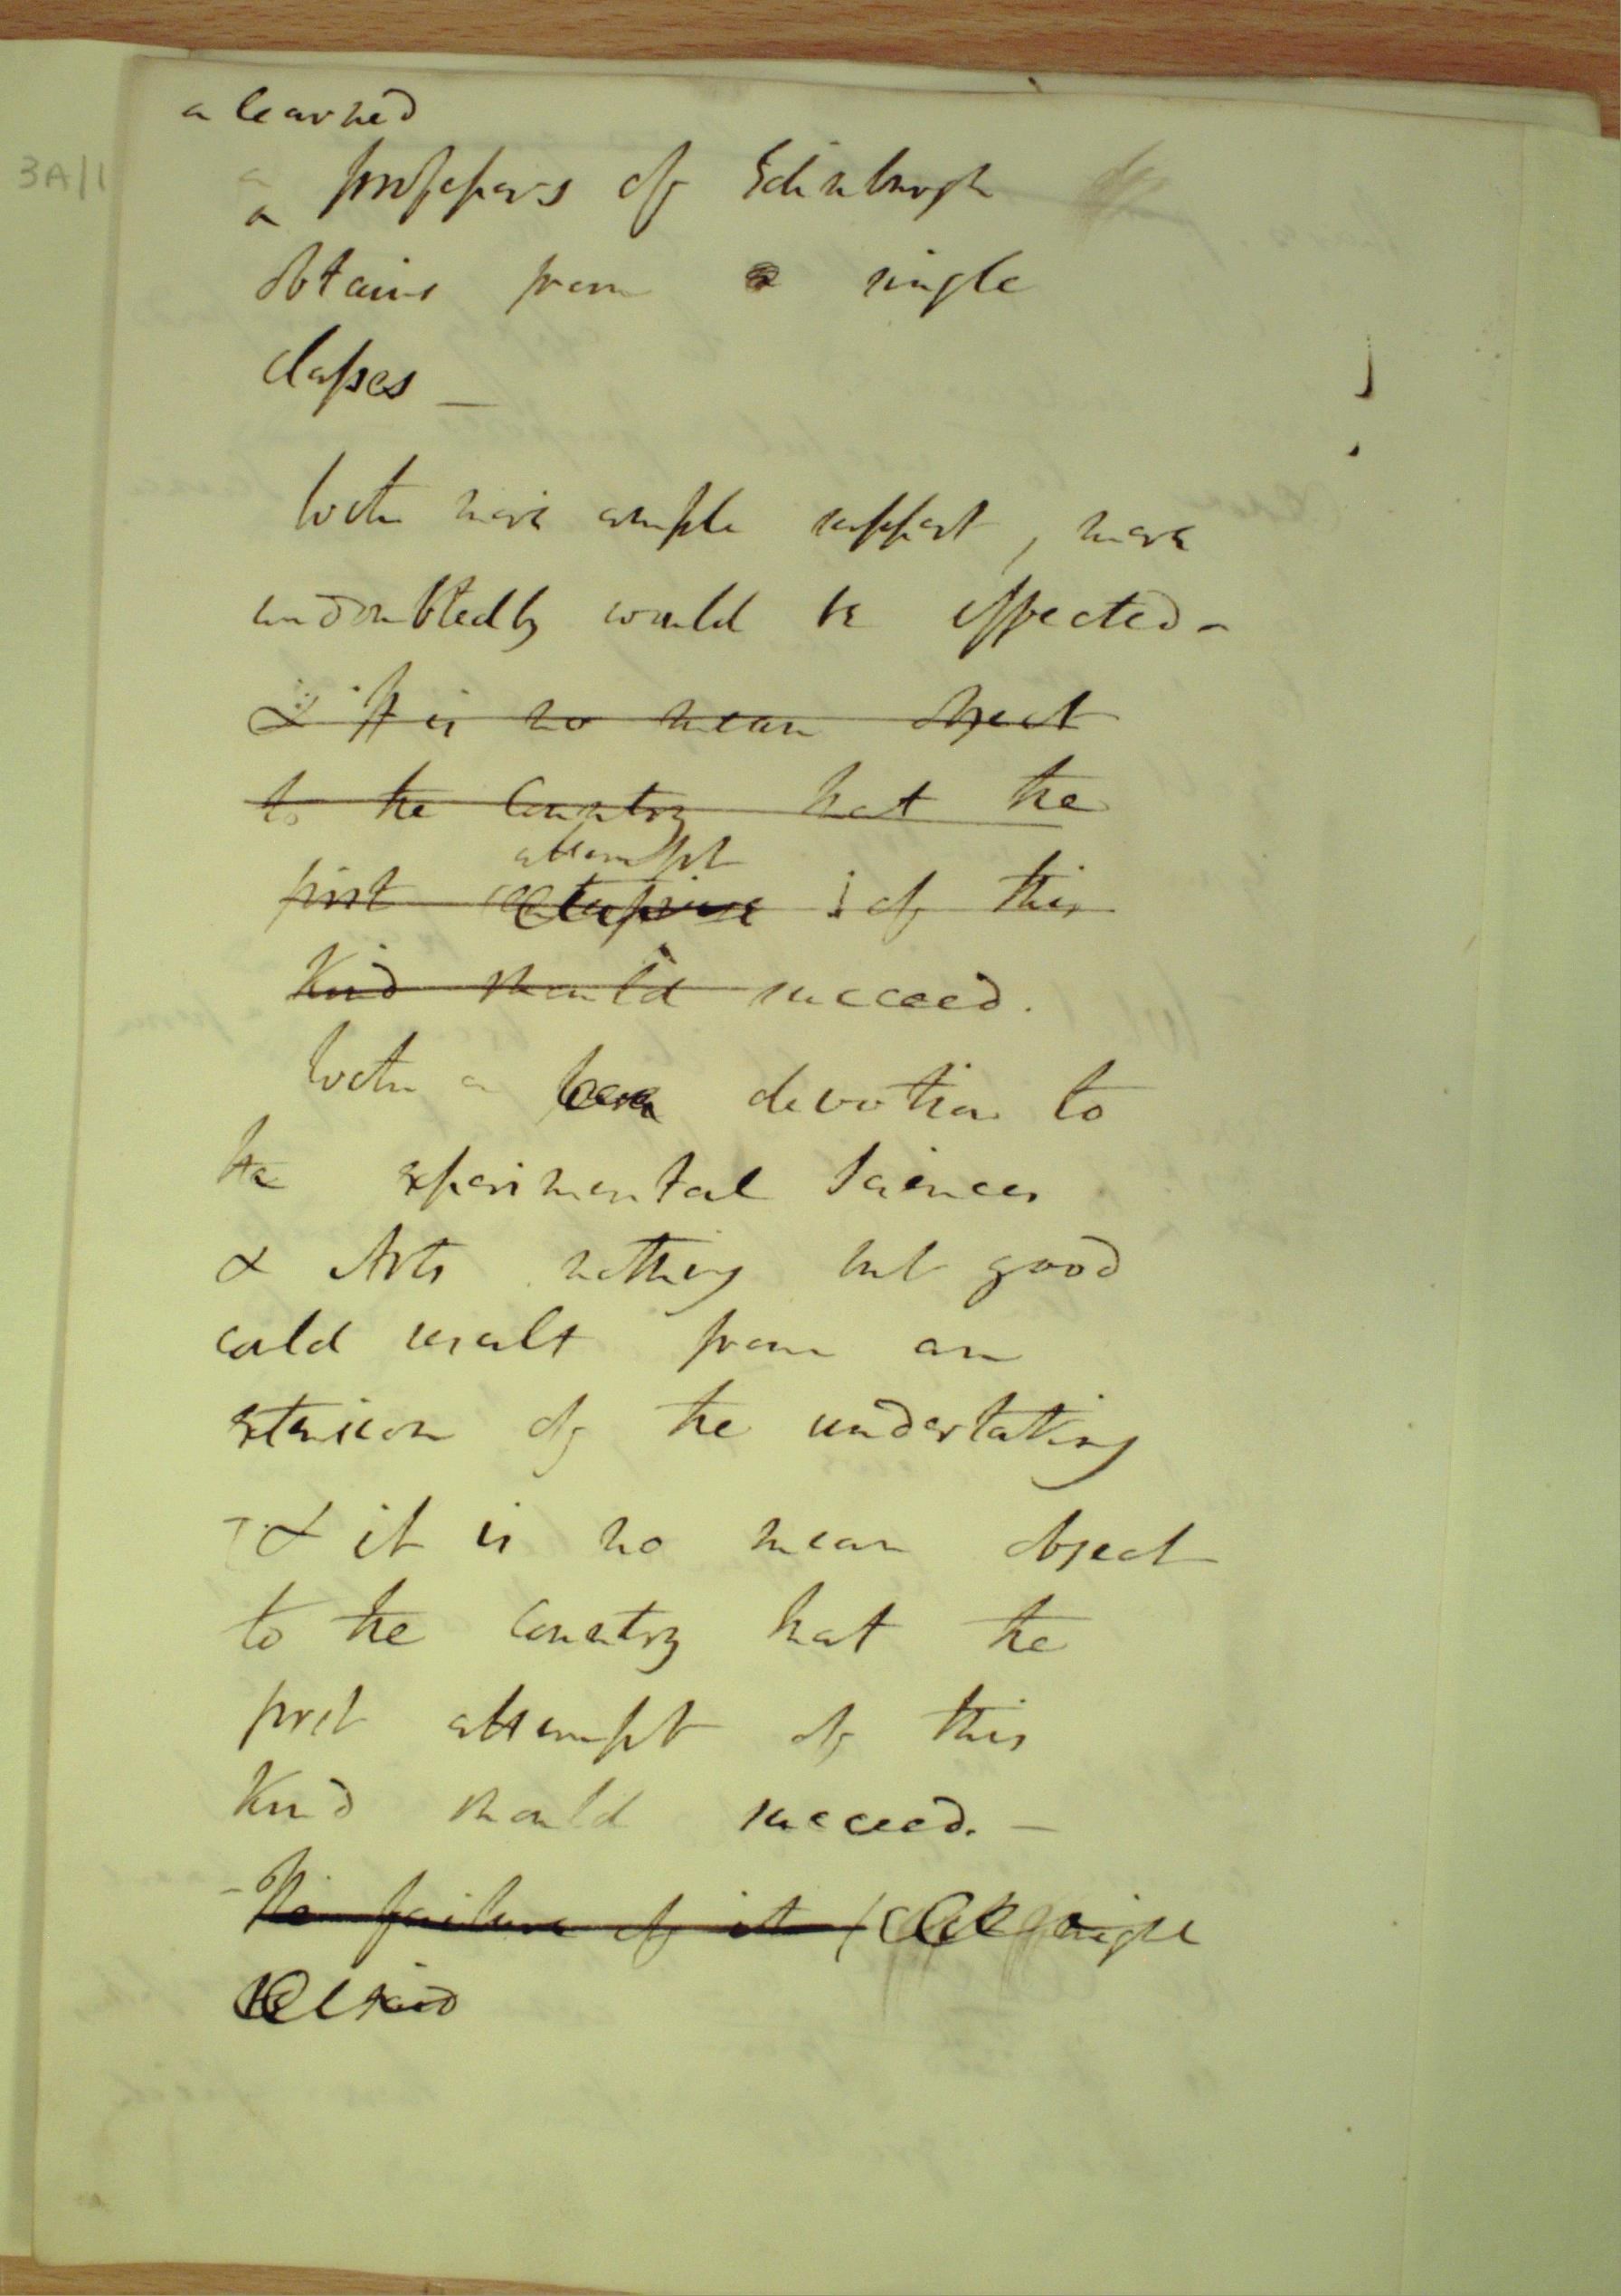 3A/1
a learned
a
a professors of Edinburgh
obtains from a single
classes _
With more ample support, more
undoubtedly would be effected -
& It is no mean object
to the Country that the
attempt
first enterprise of this
Kind should succeed.
With a devotion to
the experimental Sciences
& Arts nothing but good
could result from an
extension of the undertaking
& it is no mean object
to the Country that the
first attempt of this
Kind should succeed. -
- The failure of it